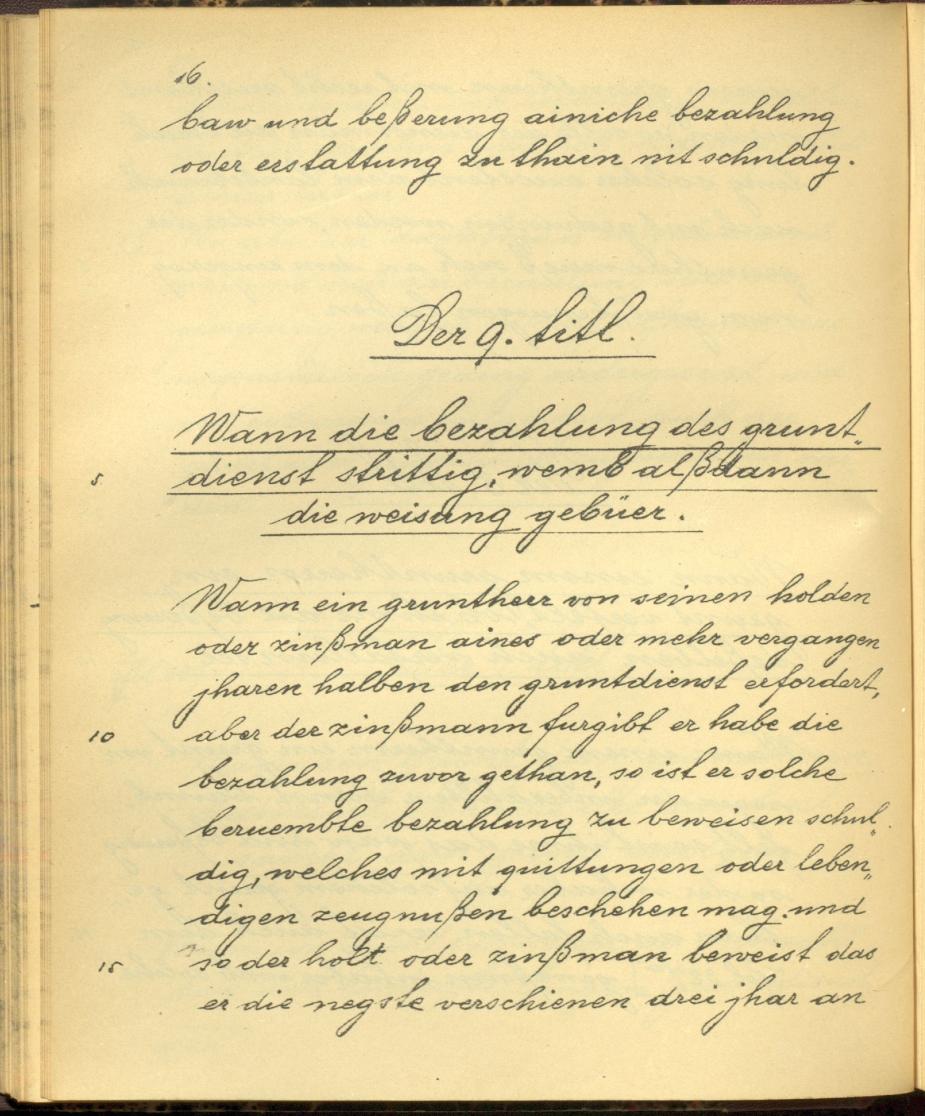 16.
baw und beßerung ainiche bezahlung
oder erstattung zu thain nit schuldig.
Der 9. titl.
Wann die bezahlung des grunt„
5 dienst strittig, wemb alßdann
die weisung gebüer.
Wann ein gruntherr von seinen holden
oder zinßman aines oder mehr vergangen
jharen halben den gruntdienst erfordert,
10 aber der zinßmann furgibt er habe die
bezahlung zuvor gethan, so ist er solche
beruembte bezahlung zu beweisen schul„
dig, welches mit quittungen oder leben„
digen zeugnußen beschehen mag. und
15 so der holt oder zinßman beweist das
er die negste verschienen drei jhar an